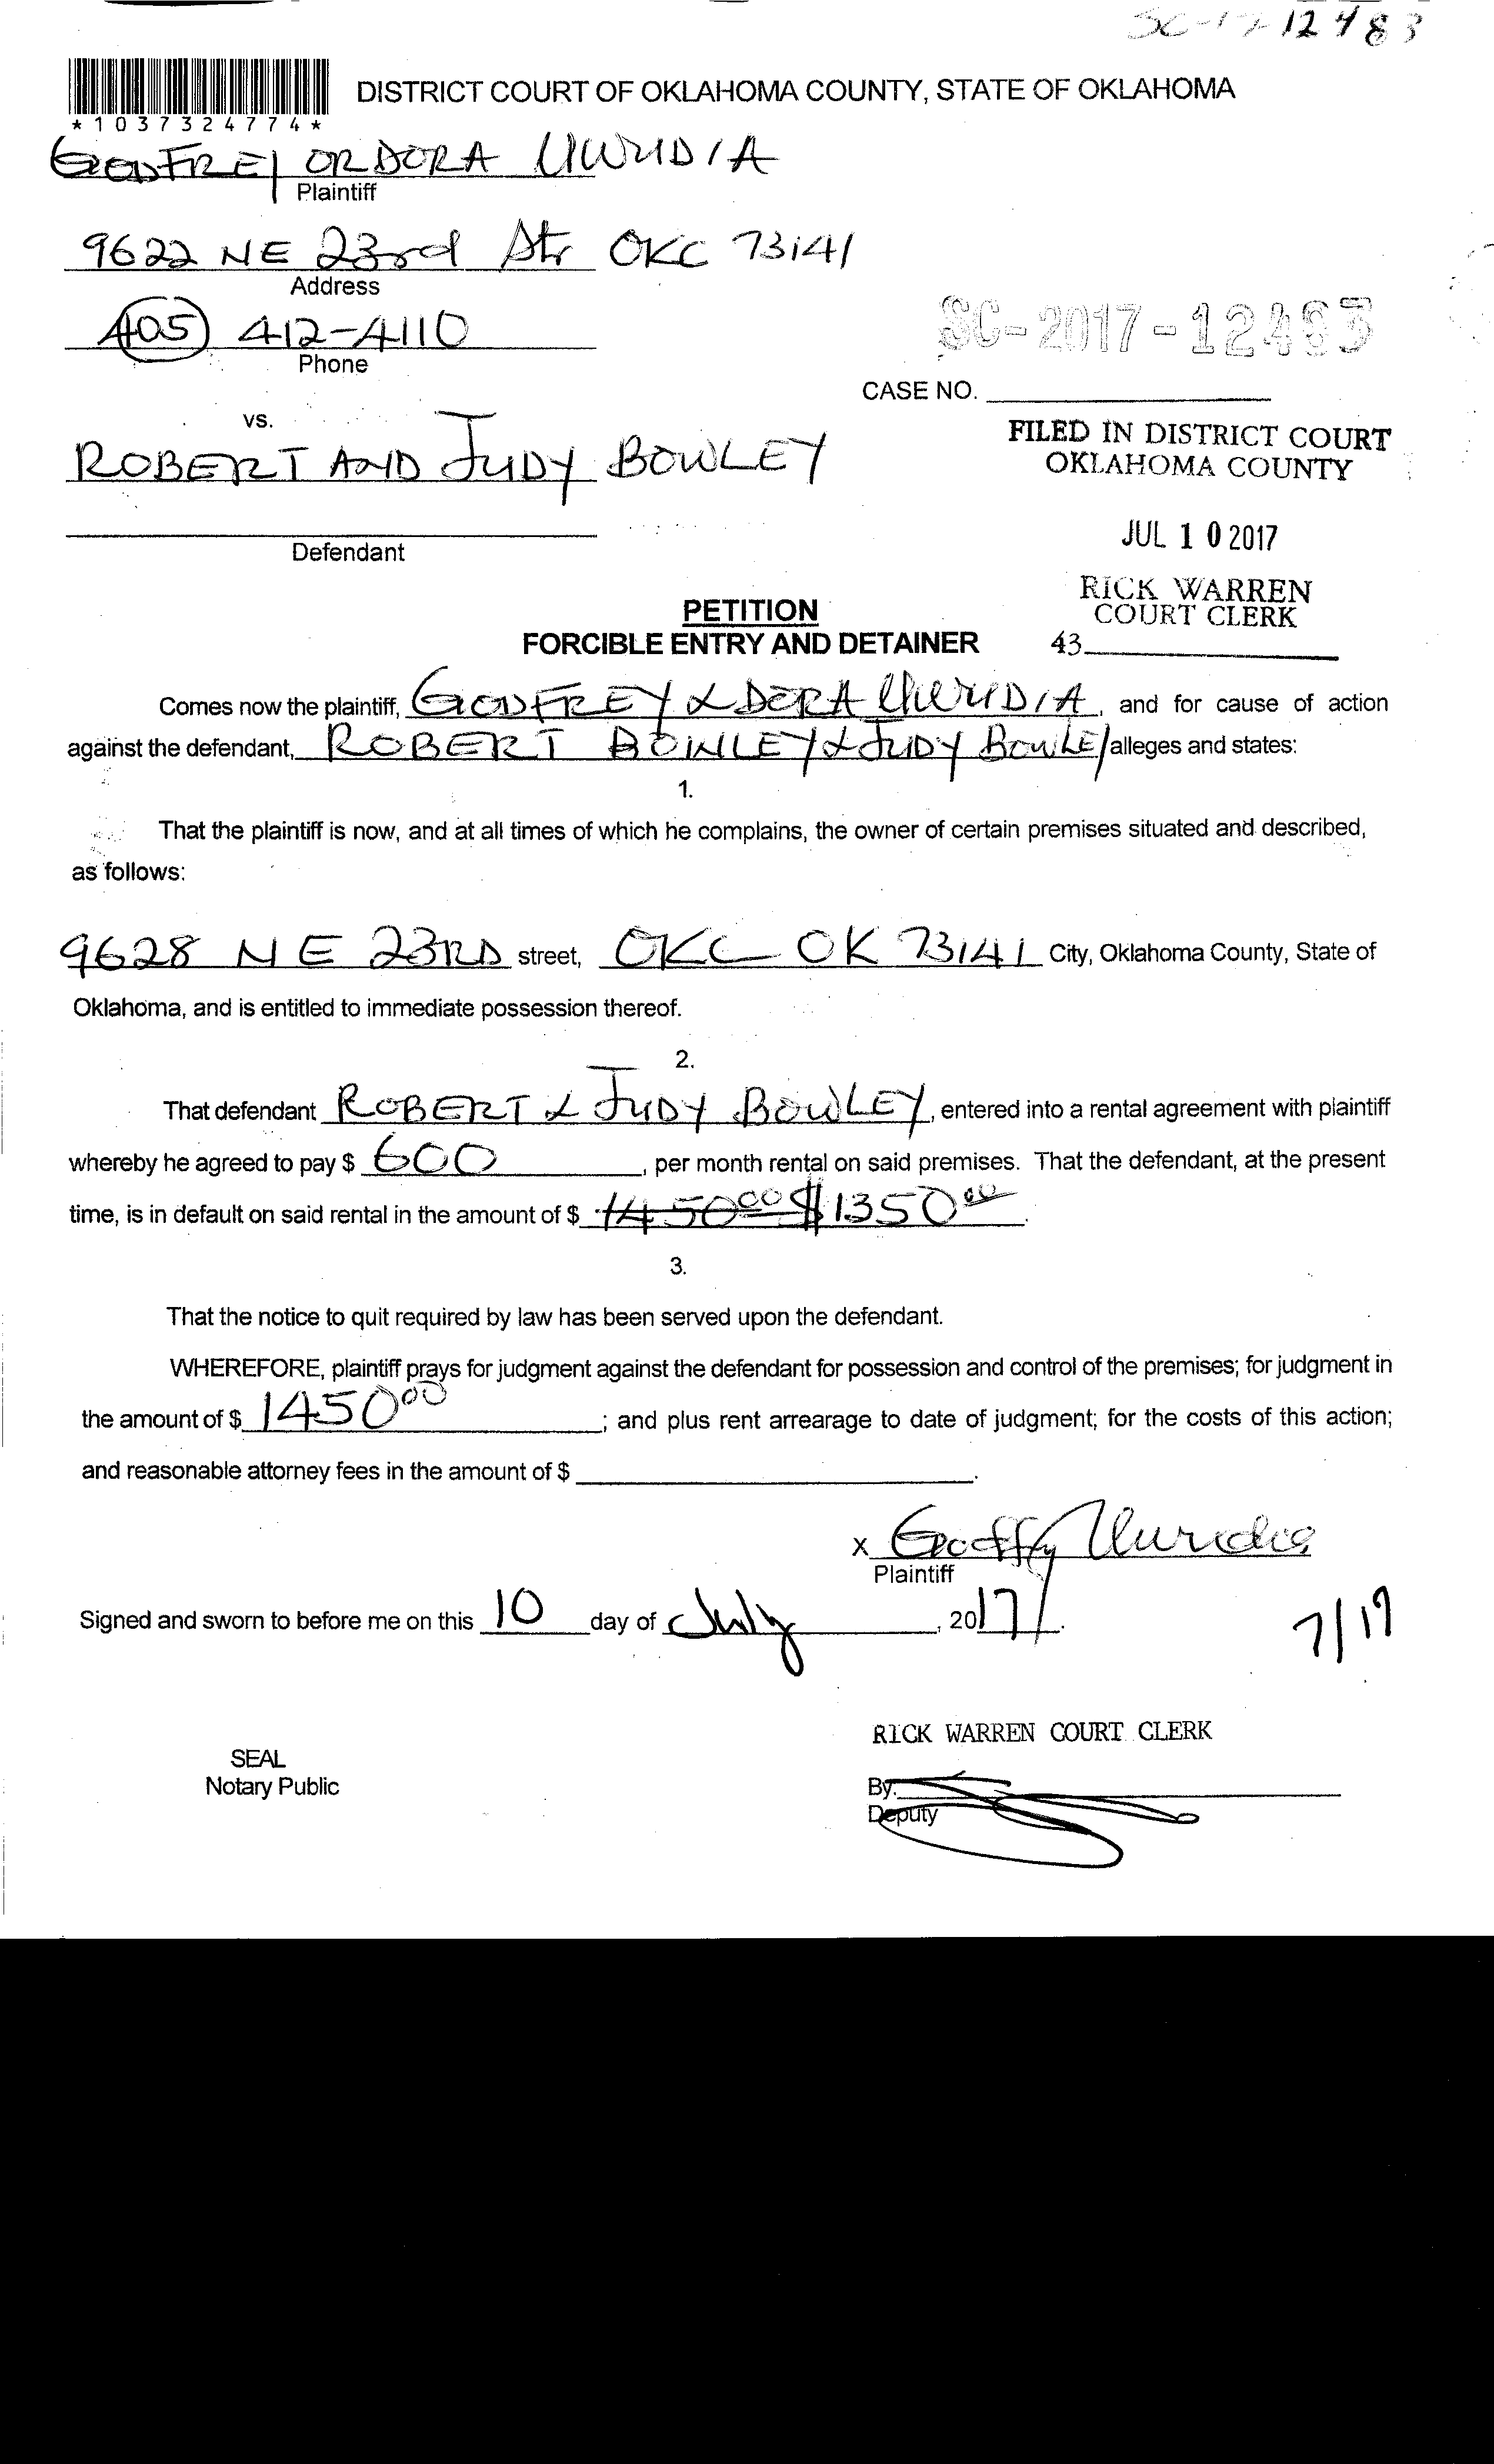 SC-17-12483
*1037324774*
DISTRICT COURT OF OKLAHOMA COUNTY, STATE OF OKLAHOMA
GODFREY OR DORA UWUDIA
Plaintiff
9622 NE 23rd Str OKC 73141
Address
(405) 412-4110
Phone
SC-2017-12483
CASE NO.
vs.
ROBERT AND JUDY BOWLEY
Defendant
FILED IN DISTRICT COURT
OKLAHOMA COUNTY
JUL 10 2017
RICK WARREN
COURT CLERK
43
PETITION
FORCIBLE ENTRY AND DETAINER
Comes now the plaintiff, GODFREY & DORA , and for cause of action
against the defendant, ROBERT BOWLEY & JUDY BOWLEY alleges and states:
1.
That the plaintiff is now, and at all times of which he complains, the owner of certain premises situated and described,
as follows:
9628 NE 23RD street, OKC OK 73141 City, Oklahoma County, State of
Oklahoma, and is entitled to immediate possession thereof.
2.
That defendant ROBERT & JUDY BOWLEY, entered into a rental agreement with plaintiff
whereby he agreed to pay $ 600, per month rental on said premises. That the defendant, at the present
time, is in default on said rental in the amount of $ 1450 00 $1350 00.
3.
That the notice to quit required by law has been served upon the defendant.
WHEREFORE, plaintiff prays for judgment against the defendant for possession and control of the premises; for judgment in
the amount of $ 1450 00; and plus rent arrearage to date of judgment; for the costs of this action;
and reasonable attorney fees in the amount of $ .
x
Plaintiff
Signed and sworn to before me on this 10 day of July, 2017.
7/19
RICK WARREN COURT CLERK
SEAL
Notary Public
By:
Deputy